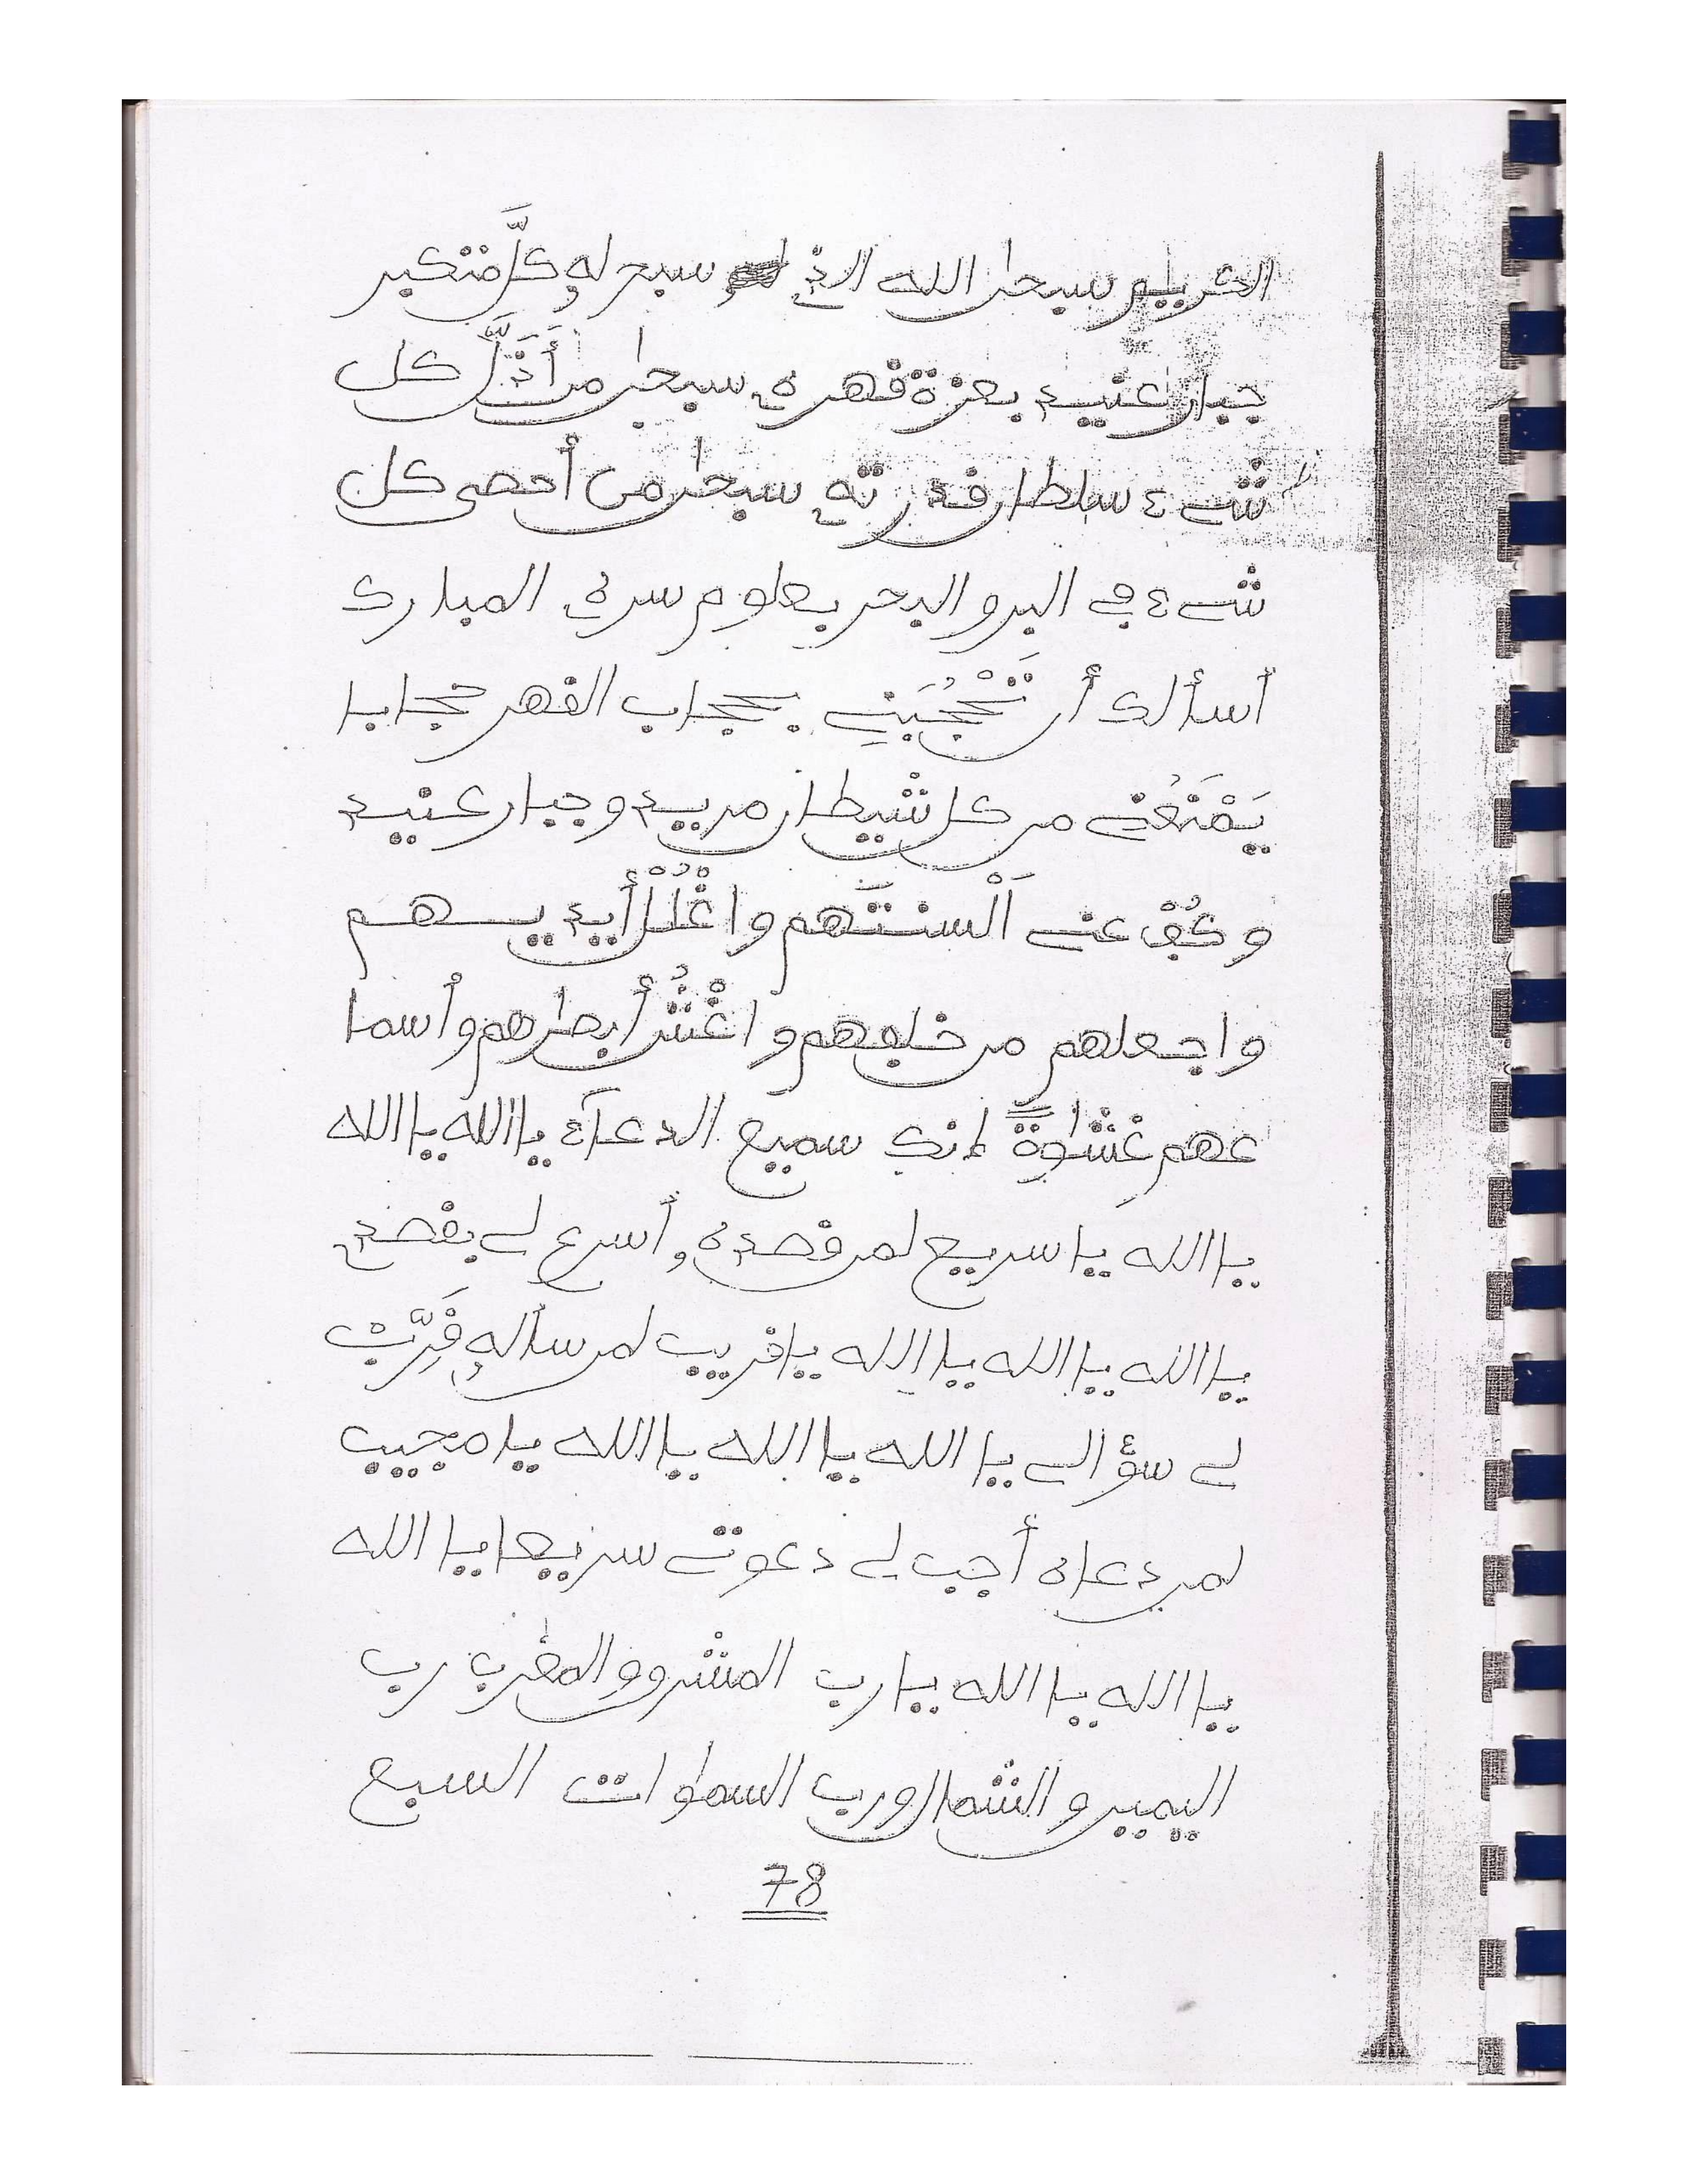 سبحان الله الذي سبح له كُلَّ متكبر
جبار عنيد بعزة قهره سبحان من أَذَلَّ كل
شيء سلطان قدرته سبحان من أحصى كل
شيء في البر والبحر بعلوم سره المبارك
أسألك أن تَحْجُبَنِي بحجاب القهر حجابا
يَمْنَعُنِي من كل شيطان مريد وجبار عنيد
وكُفْ عني أَلْسنتَهم واغْلُلْ أيديهم
واجعلهم من خلفهم واغْشُ أبصارهم وأسما
عهم غشاوةً إنك سميع الدعاء يا الله يا الله
يا الله يا سريع لمن قصده أسرع لي بقصدي
يا الله يا الله يا الله يا قريب لمن سأله قَرِّبْ
لي سؤالي يا الله يا الله يا الله يا مجيب
لمن دعاه أجب لي دعوتي سريعا يا الله
يا الله يا الله يا رب المشرق والمغرب رب
اليمين والشمال ورب السماوات السبع
78